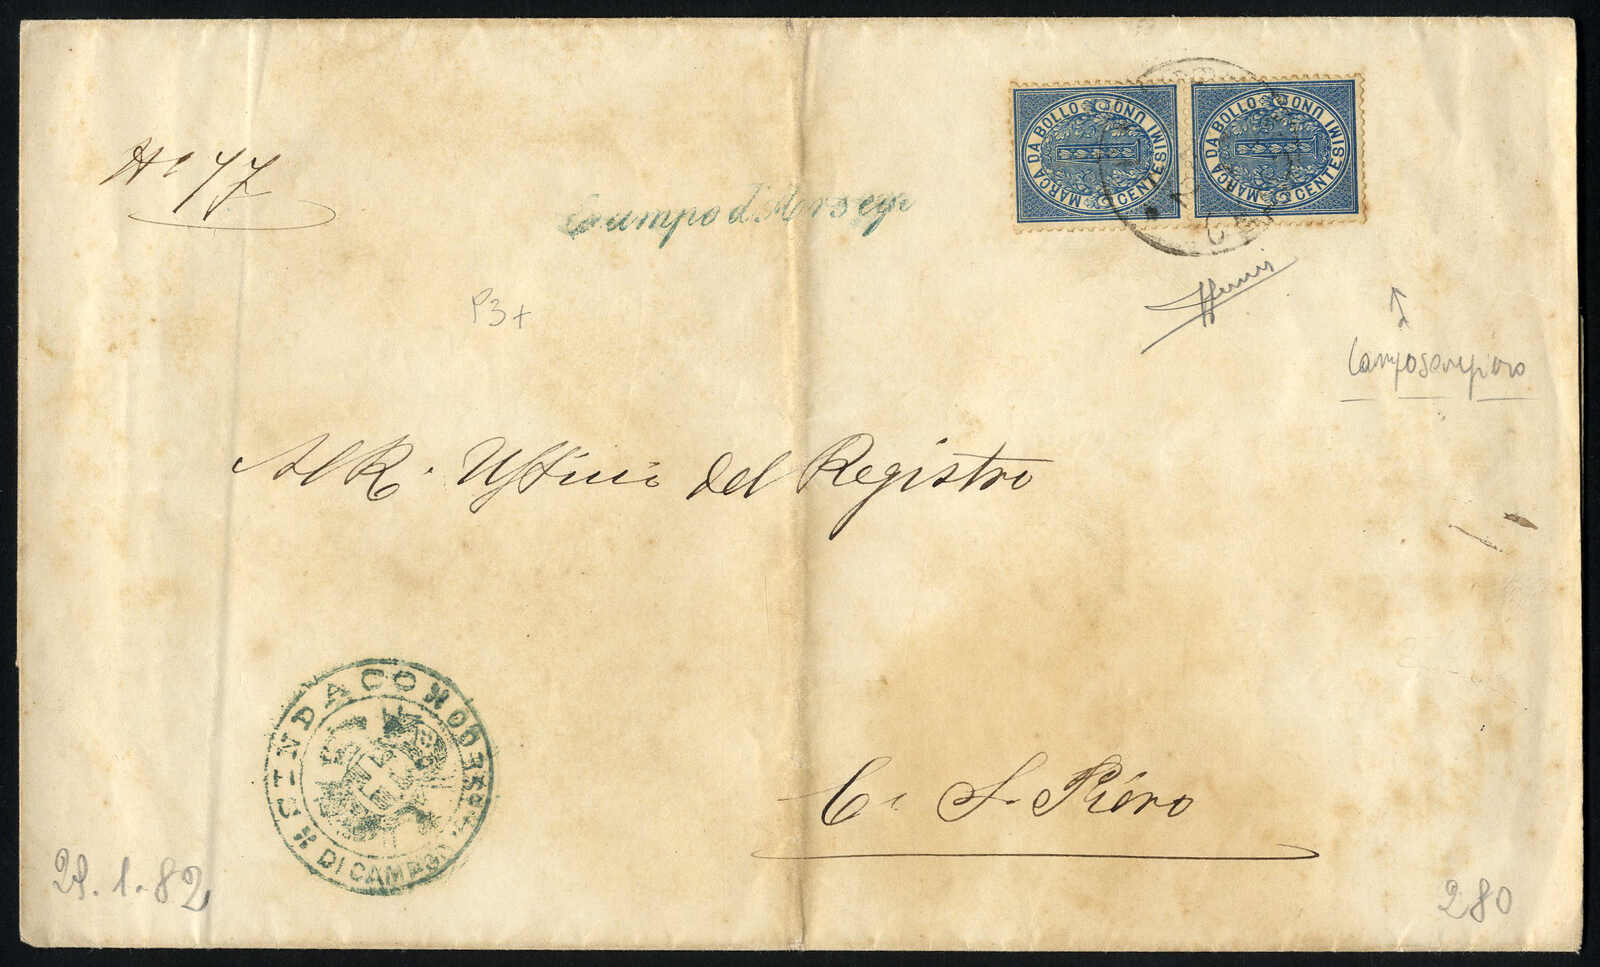 MARCA DA BOLLO CENTESIMI UNO
MARCA DA BOLLO CENTESIMI UNO
No 77
Campo d'Arsego
P3+
Camposampiero
Al R. Ufficio del Registro
C. S. Piero
SINDACO
DI CAMPO
29.1.82
280